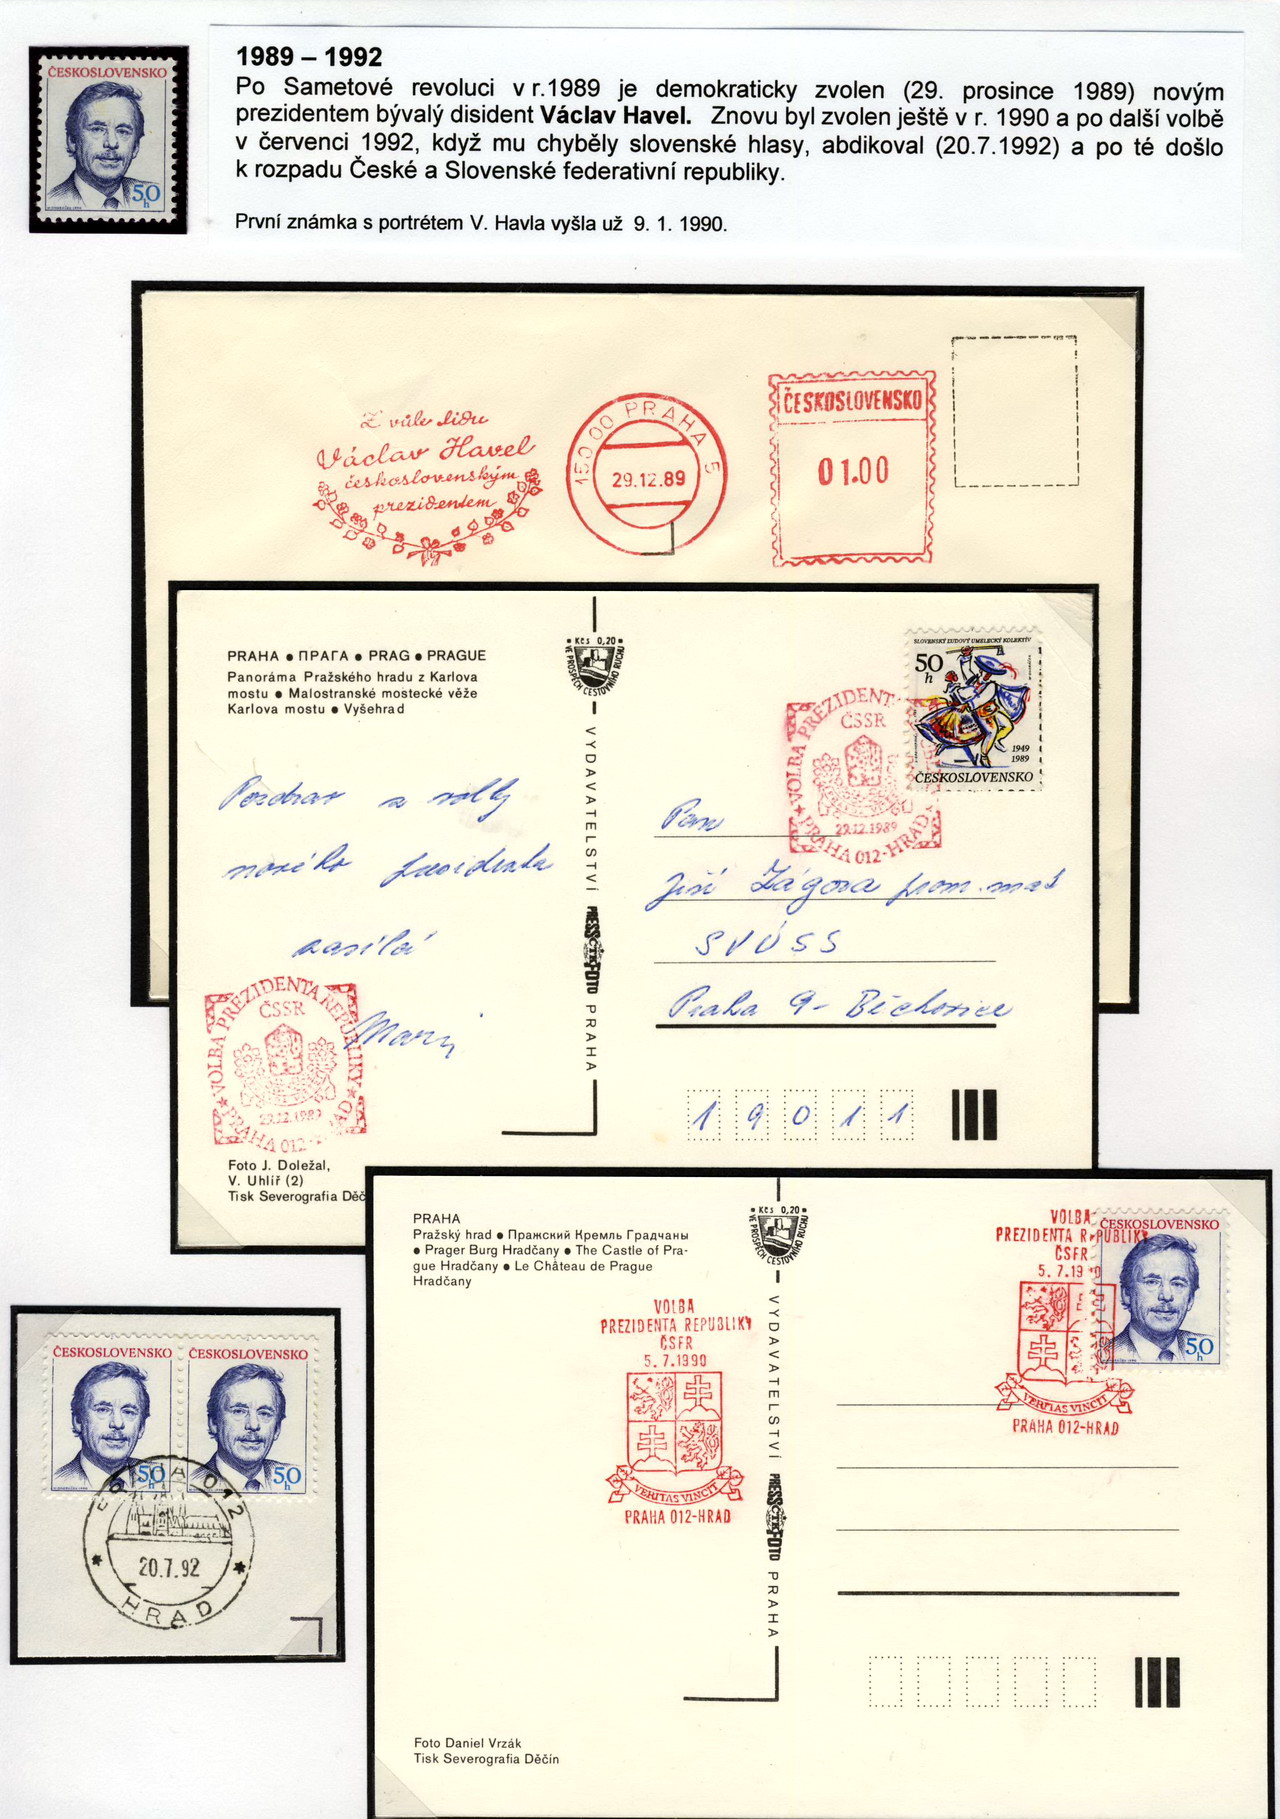 ČESKOSLOVENSKO
50
h
1989 – 1992
Po Sametové revoluci v r.1989 je demokraticky zvolen (29. prosince 1989) novým
prezidentem bývalý disident Václav Havel. Znovu byl zvolen ještě v r. 1990 a po další volbě
v červenci 1992, když mu chyběly slovenské hlasy, abdikoval (20.7.1992) a po té došlo
k rozpadu České a Slovenské federativní republiky.
První známka s portrétem V. Havla vyšla už 9. 1. 1990.
Z vůle lidu
Václav Havel
československým
prezidentem
150 00 PRAHA 5
29.12.89
ČESKOSLOVENSKO
01.00
PRAHA ● ПРАГА ● PRAG ● PRAGUE
Panoráma Pražského hradu z Karlova
mostu ● Malostranské mostecké věže
Karlova mostu ● Vyšehrad
Kčs 0,20
VE PROSPĚCH CESTOVNÍHO RUCHU
VYDAVATELSTVÍ PRESSFOTO PRAHA
ČTK
SLOVENSKÝ ĽUDOVÝ UMELECKÝ KOLEKTÍV
50
h
1949
1989
ČESKOSLOVENSKO
VOLBA PREZIDENT
ČSSR
29.12.1989
PRAHA 012-HRAD
Pozdrav z volby
nového prezidenta
zasílá
Pan
Jiří Zágora prom. mat
SVÚSS
Praha 9 - Běchovice
19011
VOLBA PREZIDENTA REPUBLIKY
ČSSR
29.12.1989
PRAHA 012-HRAD
Foto J. Doležal,
V. Uhlíř (2)
Tisk Severografia Děč
PRAHA
Pražský hrad ● Пражский Кремль Градчаны
● Prager Burg Hradčany ● The Castle of Pra-
gue Hradčany ● Le Château de Prague
Hradčany
Kčs 0,20
VE PROSPĚCH CESTOVNÍHO RUCHU
VYDAVATELSTVÍ PRESSFOTO PRAHA
ČTK
VOLBA
PREZIDENTA REPUBLIKY
ČSFR
5.7.1990
VERITAS VINCIT
PRAHA 012-HRAD
VOLBA
PREZIDENTA REPUBLIKY
ČSFR
5.7.1990
VERITAS VINCIT
PRAHA 012-HRAD
ČESKOSLOVENSKO
50
h
ČESKOSLOVENSKO
50
h
ČESKOSLOVENSKO
50
h
PRAHA 012
20.7.92
HRAD
Foto Daniel Vrzák
Tisk Severografia Děčín